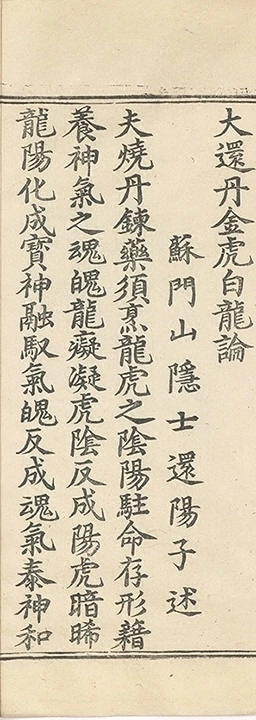 大還丹金虎白龍論
蘇門山隱士還陽子述
夫燒丹鍊藥須烹龍虎之陰陽駐命存形藉
養神氣之魂魄龍癡凝虎陰反成陽虎暗晞
龍陽化成寶神融馭氣魄反成魂氣泰神和